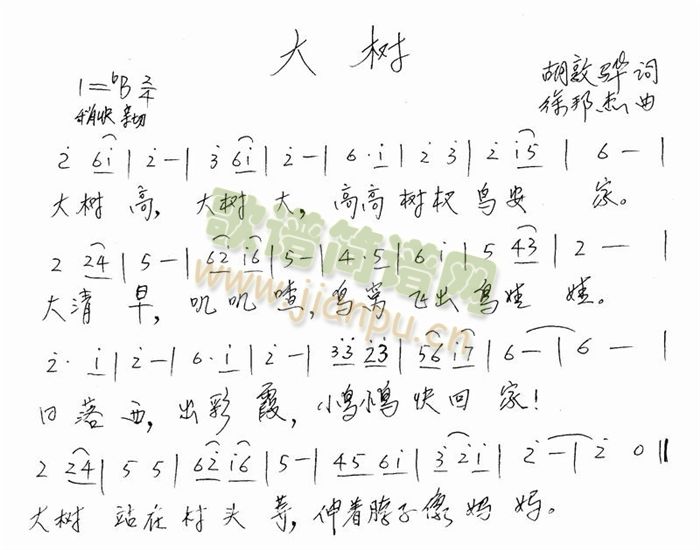 大树
1=ᵇB 2/4
稍快 亲切
胡敦骅 词
徐邦杰 曲
2̇ 6i̇ | 2̇ — | 3̇ 6i̇ | 2̇ — | 6 · i̇ | 2̇ 3̇ | 2̇ i̇5 | 6 — |
大树 高, 大树 大, 高高 树杈 鸟安 家。
2 24 | 5 — | 62̇ i̇6 | 5 — | 4 · 5 | 6 i̇ | 5 43 | 2 — |
大清 早, 叽叽 喳, 鸟窝 飞出 鸟娃 娃。
2̇ · i̇ | 2̇ — | 6 · i̇ | 2̇ — | 3̇3̇ 2̇3̇ | 56 i̇7 | 6 — | 6 — |
日落 西, 出彩 霞, 小鸟小鸟 快回 家!
2 24 | 5 5 | 62̇ i̇6 | 5 — | 45 6i̇ | 3̇ 2̇i̇ | 2̇ — | 2̇ 0 ‖
大树 站在 村头 等, 伸着脖子 像妈 妈。
歌谱简谱网
www.jianpu.cn